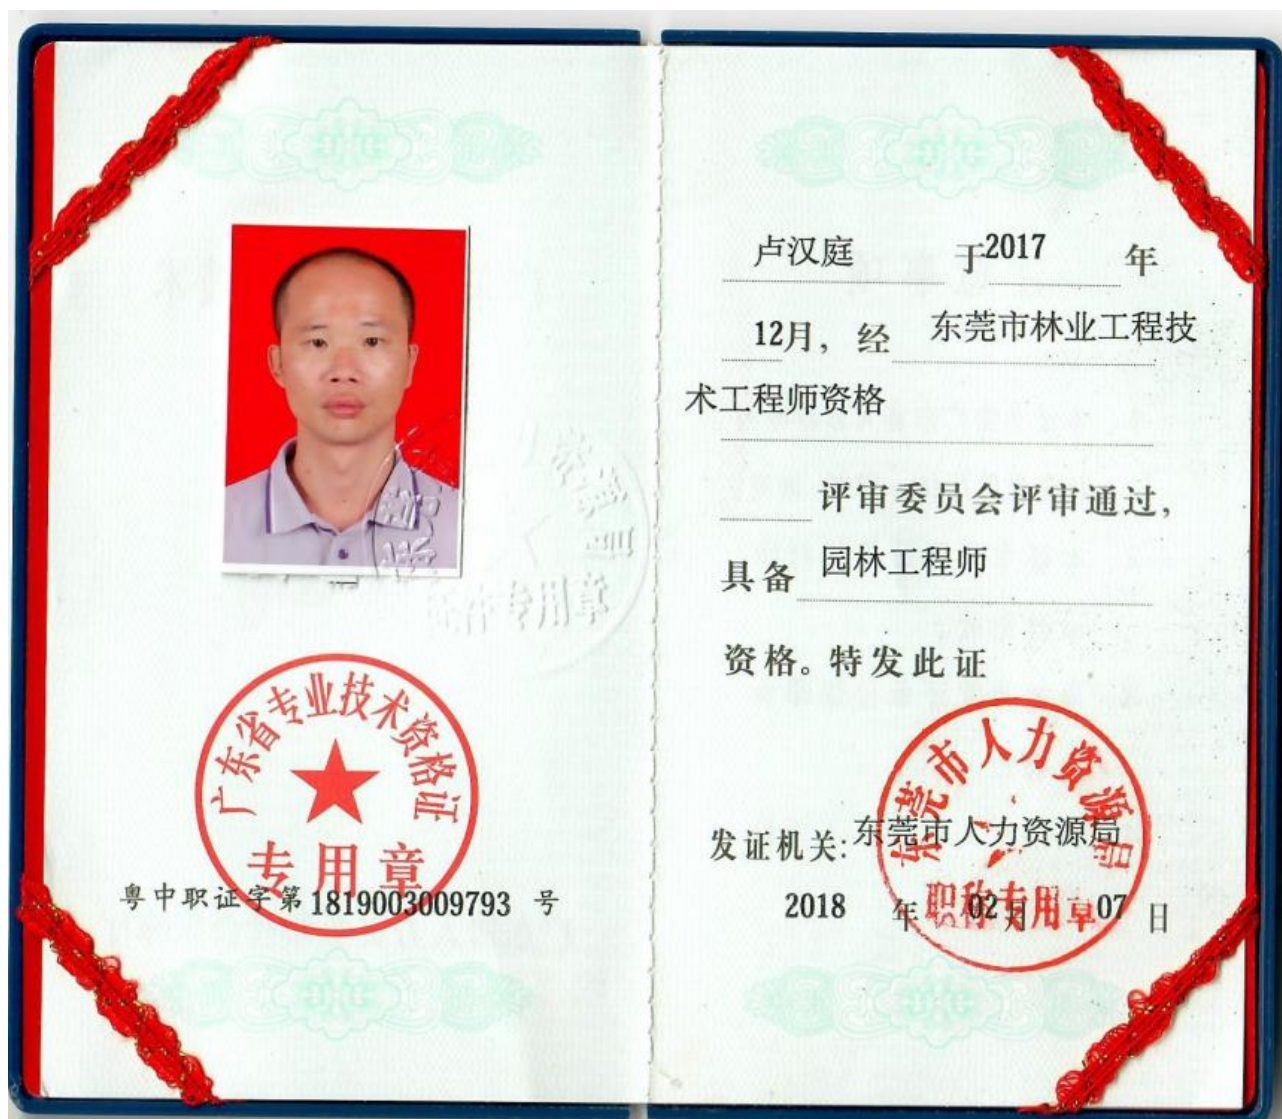 广东省专业技术资格证
专用章
粤中职证字第 1819003009793 号
卢汉庭 于2017 年
12月，经 东莞市林业工程技
术工程师资格
评审委员会评审通过，
具备 园林工程师
资格。特发此证
东莞市人力资源局
发证机关：东莞市人力资源局
职称专用章
2018 年 02 月 07 日